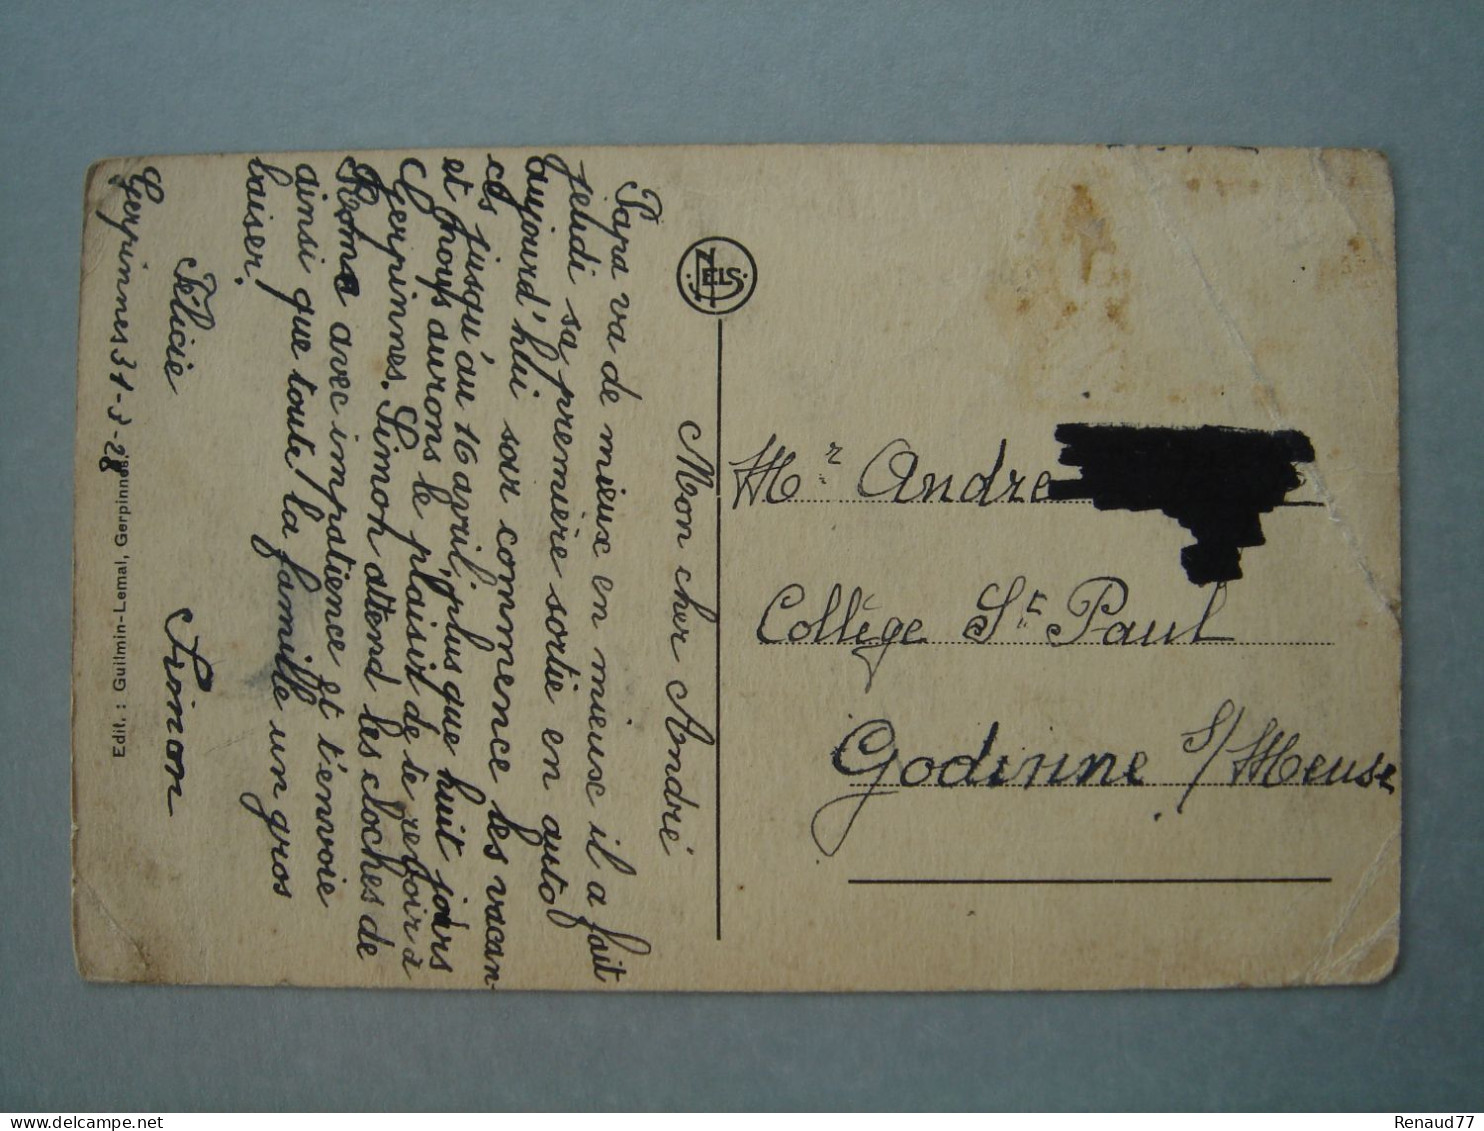 Mon cher André
Papa va de mieux en mieux il a fait
jeludi sa première sortie en auto
aujourd'hui soir commence les vacan-
ces jusqu'au 16 avril, plus que huit jours
et nous aurons le plaisir de te revoir à
Gerpinnes. Simon attend les cloches de
Rome avec impatience et t'envoie
ainsi que toute la famille un gros
baiser.
Félicie Simon
Gerpinnes 31-3-28
Edit. : Guilmin-Lemal, Gerpinnes.
NELS
Mr André
Collège St Paul
Godinne s/Meuse
delcampe.net
Renaud77